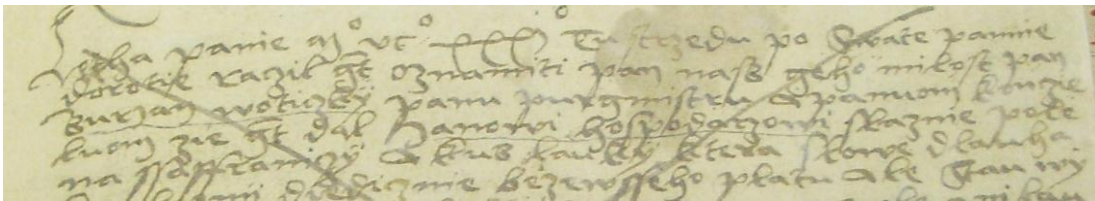 Letha panie mº vcº xxxº Tu strzedu po Swate pannie
dorotie razil gt oznamiti pan nass geho milost pan
Burian woticzky panu purgmistru a panuom konsse
luom zie gt dal Hanowi hospodarzowi skaznie pole
na ssaffraniczy a kus lauky ktera slowe dlauha
diedicznie bezewsseho platu ale